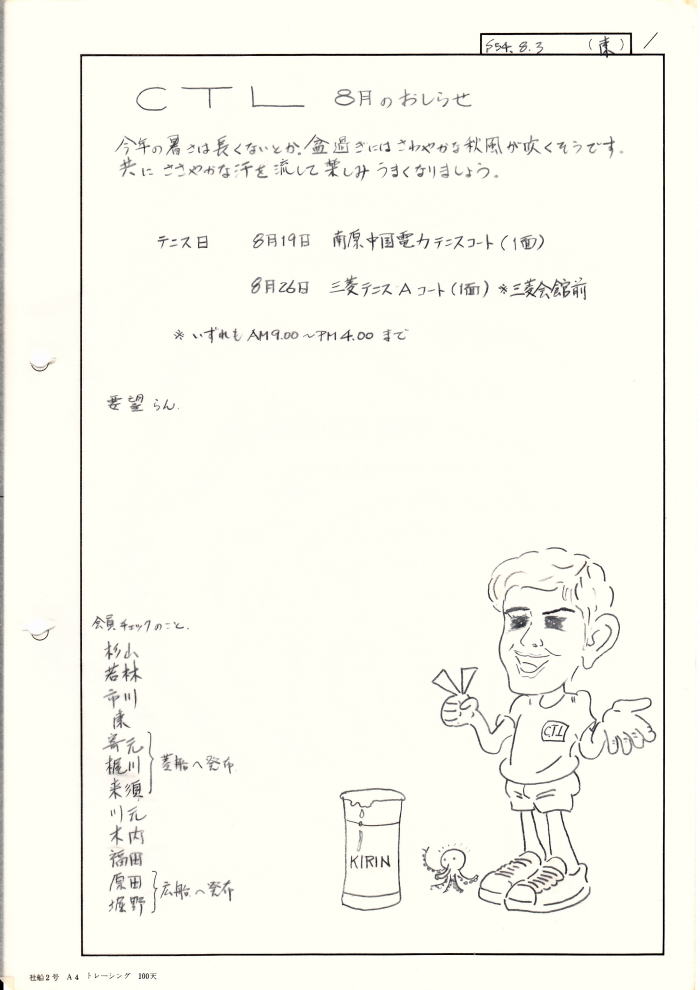 S54.8.3 (東) /
CTL 8月のおしらせ
今年の暑さは長くないとか、盆過ぎにはさわやかな秋風が吹くそうです。
共に ささやかな汗を流して楽しみ うまくなりましょう。
テニス日 8月19日 南原中国電力テニスコート(1面)
8月26日 三菱テニスAコート(1面) ※三菱会館前
※ いずれも AM9.00~PM4.00 まで
要望らん.
会員チェックのこと.
杉山
若林
市川
東
寄元
梶川 菱船へ発布
来須
川元
木内
福田
原田
堀野 広船へ発布
CTL
KIRIN
社船2号 A4 トレーシング 100天